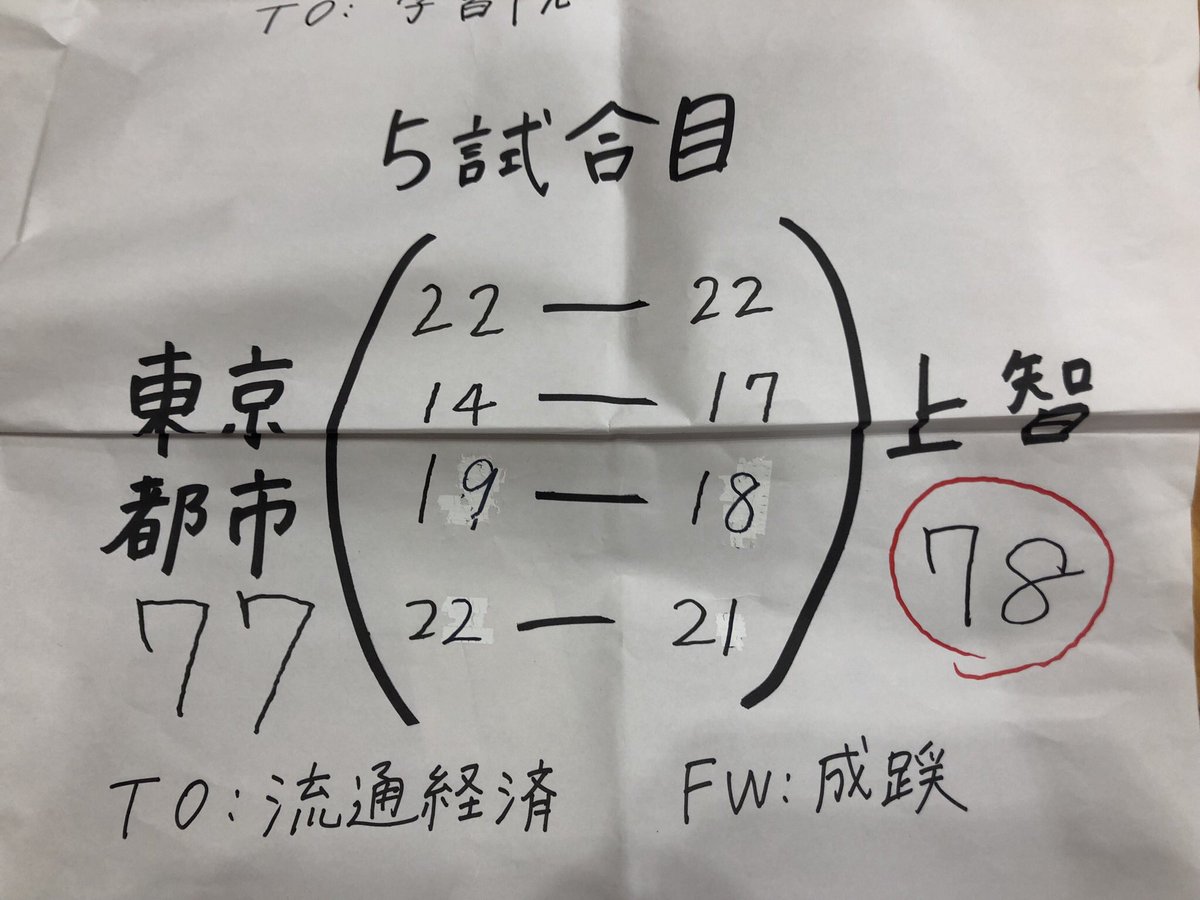 TO: 学習院
5試合目
東京都市 77
22 — 22
14 — 17
19 — 18
22 — 21
上智 78
TO: 流通経済 FW: 成蹊